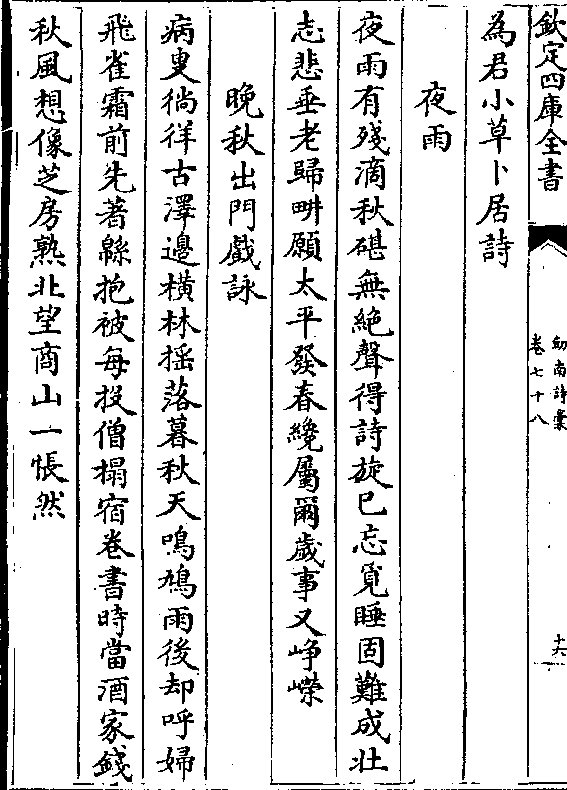 欽定四庫全書
劍南詩稾
卷七十八
十六
為君小草卜居詩
夜雨
夜雨有殘滴秋碪無絶聲得詩旋已忘覓睡固難成壯
志悲垂老歸畊願太平發春纔屬爾歲事又崢嶸
晚秋出門戲詠
病叟徜徉古澤邊横林揺落暮秋天鳴鳩雨後却呼婦
飛雀霜前先著緜抱被每投僧榻宿卷書時當酒家錢
秋風想像芝房熟北望商山一悵然